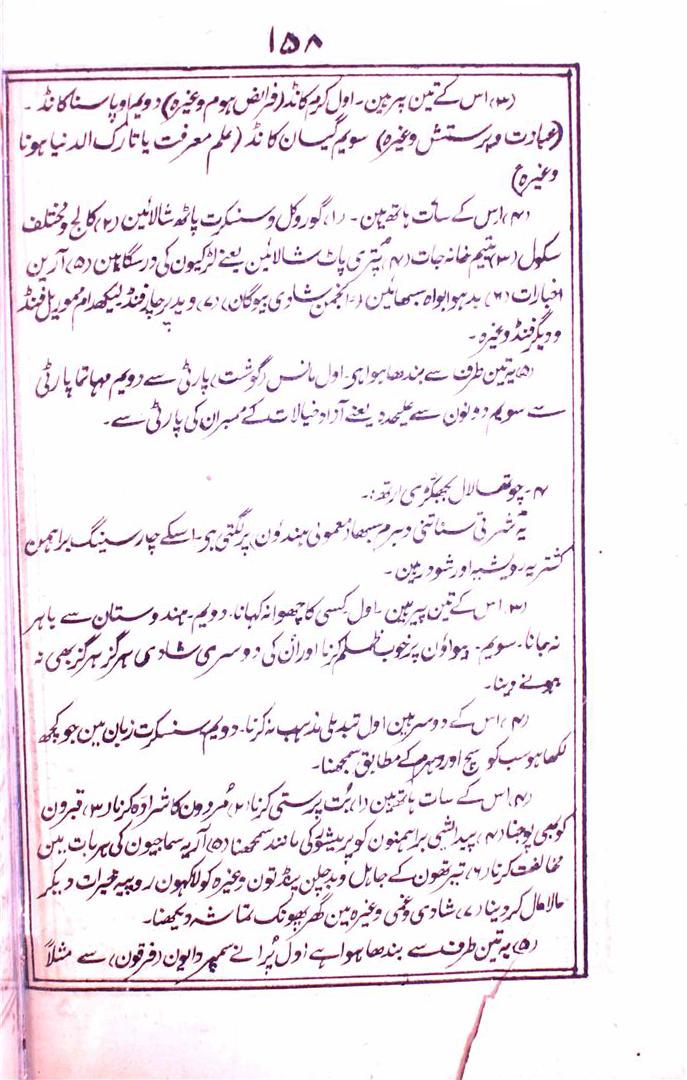 ۱۵۸
(۳) اس کے تین پیر ہین۔ اول کرم کانڈ (فرائض ہوم وغیرہ) دویم اوپاسنا کانڈ۔
(عبادت و پرستش وغیرہ) سویم گیان کانڈ (علم معرفت یا تارک الدنیا ہونا
وغیرہ)
(۴) اس کے سات ہاتھ ہین۔ (۱) گوروکل و سنسکرت پاٹھ شالائین (۲) کالج و مختلف
سکول (۳) یتیم خانہ جات (۴) پُتری پاٹ شالائین یعنے لڑکیون کی درسگاہین (۵) آرین
اخبارات (۶) بدہوا بواہ سبھائین (انجمن شادی بیوگان) (۷) وید پرچار فنڈ لیکھرام میموریل فنڈ
و دیگر فنڈ وغیرہ۔
(۵) یہ تین طرف سے بندھا ہوا ہی۔ اول مانس (گوشت) پارٹی سے دویم مہاتما پارٹی
سے سویم دونون سے علیحدہ یعنے آزاد خیالات کے ممبران کی پارٹی سے۔
۴۔ چوتھا لال بجھکڑی ارتھ:۔
یہ شرتی سناتنی دہرم سبھا و معمولی ہندئون پر لگتی ہی۔ اسکے چار سینگ براہمن
کشتریہ۔ ویشیہ اور شودر ہین۔
(۳) اس کے تین پیر ہین۔ اول کسی کا چھوا نہ کہانا۔ دویم۔ ہندوستان سے باہر
نہ جانا۔ سویم۔ بیواؤن پر خوب ظلم کرنا اور اُن کی دوسری شادی ہرگز ہرگز بھی نہ
ہونے دینا۔
(۴) اس کے دو سر ہین اول تبدیلی مذہب نہ کرنا۔ دویم سنسکرت زبان مین جو کچھ
لکھا ہو سب کو سچ اور دہرم کے مطابق سمجھنا۔
(۴) اس کے سات ہاتھ ہین (۱) بُت پرستی کرنا (۲) مُردون کا شرادہ کرنا (۳) قبرون
کو بھی پوجنا (۴) پیدائشی براہمنون کو پرمیشور کی مانند سمجھنا (۵) آریہ سماجیون کی ہر بات مین
مخالفت کرنا (۶) تیرتھون کے جاہل و بدچلن پنڈتون وغیرہ کو لاکہون روپیہ خیرات دیکر
مالا مال کر دینا (۷) شادی و غمی وغیرہ مین گھر پھونک تماشہ دیکھنا۔
(۵) یہ تین طرف سے بندھا ہوا ہے اول پُرانے سمپردایون (فرقون) سے مثلاً